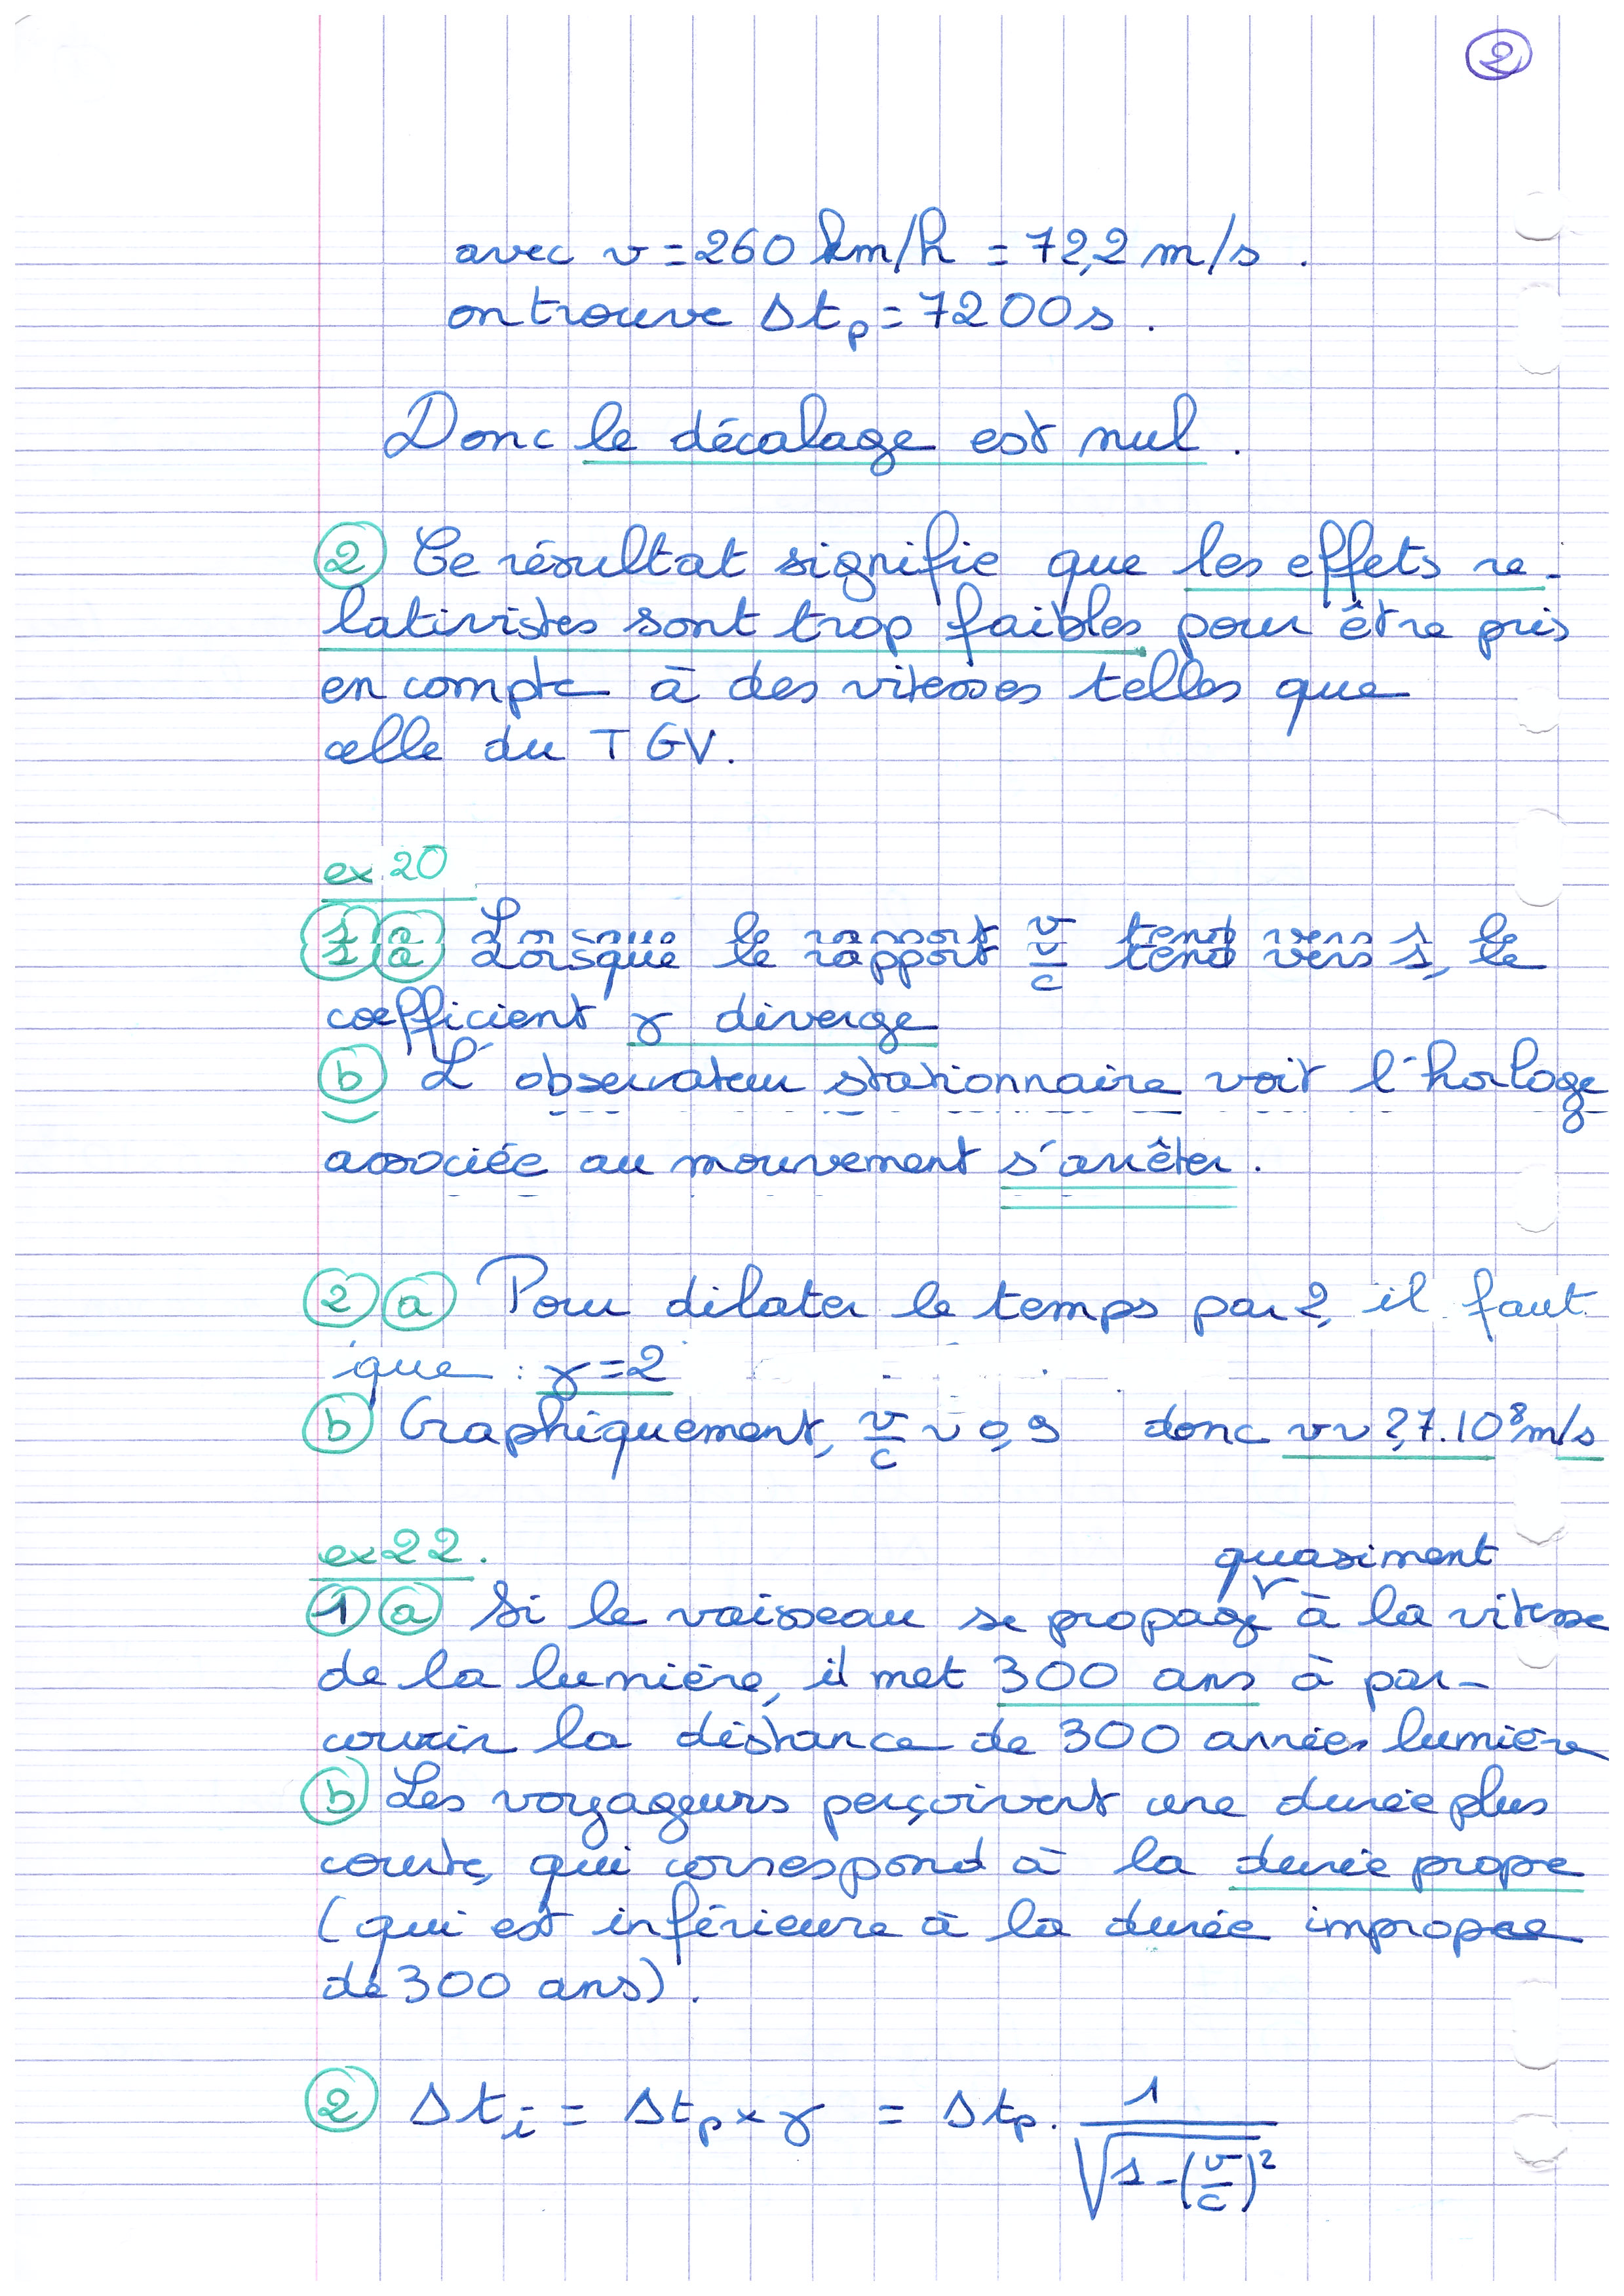 2
avec v = 260 km/h = 72,2 m/s .
on trouve Δtp = 7200 s .
Donc le décalage est nul .
2 Ce résultat signifie que les effets re-
lativistes sont trop faibles pour être pris
en compte à des vitesses telles que
celle du TGV.
ex 20
1 a Lorsque le rapport v/c tend vers 1, le
coefficient γ diverge
b L'observateur stationnaire voit l'horloge
associée au mouvement s'arrêter .
2 a Pour dilater le temps par 2, il faut
que : γ = 2
b Graphiquement, v/c ~ 0,9 donc v ~ 2,7.10⁸ m/s
ex 22.
quasiment
1 a Si le vaisseau se propage à la vitesse
de la lumière, il met 300 ans à par-
courir la distance de 300 années lumière
b Les voyageurs perçoivent une durée plus
courte, qui correspond à la durée propre
(qui est inférieure à la durée impropre
de 300 ans).
2 Δti = Δtp × γ = Δtp . 1/√(1-(v/c)²)